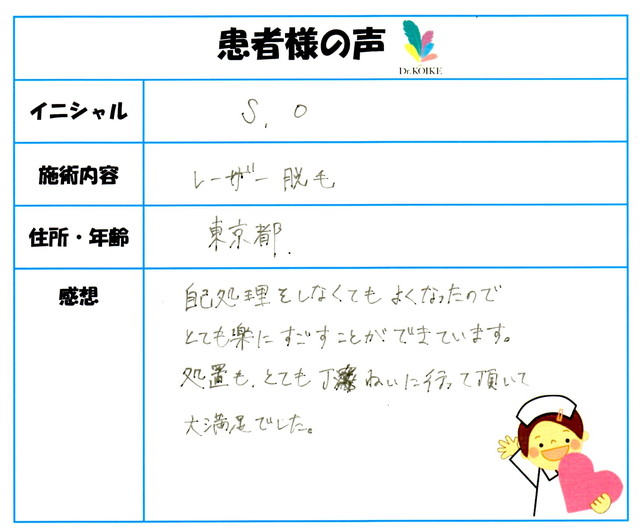 患者様の声
Dr.KOIKE
イニシャル S.O
施術内容 レーザー脱毛
住所・年齢 東京都.
感想 自己処理をしなくてもよくなったので
とても楽にすごすことができています。
処置も、とても丁ねいに行って頂いて
大満足でした。